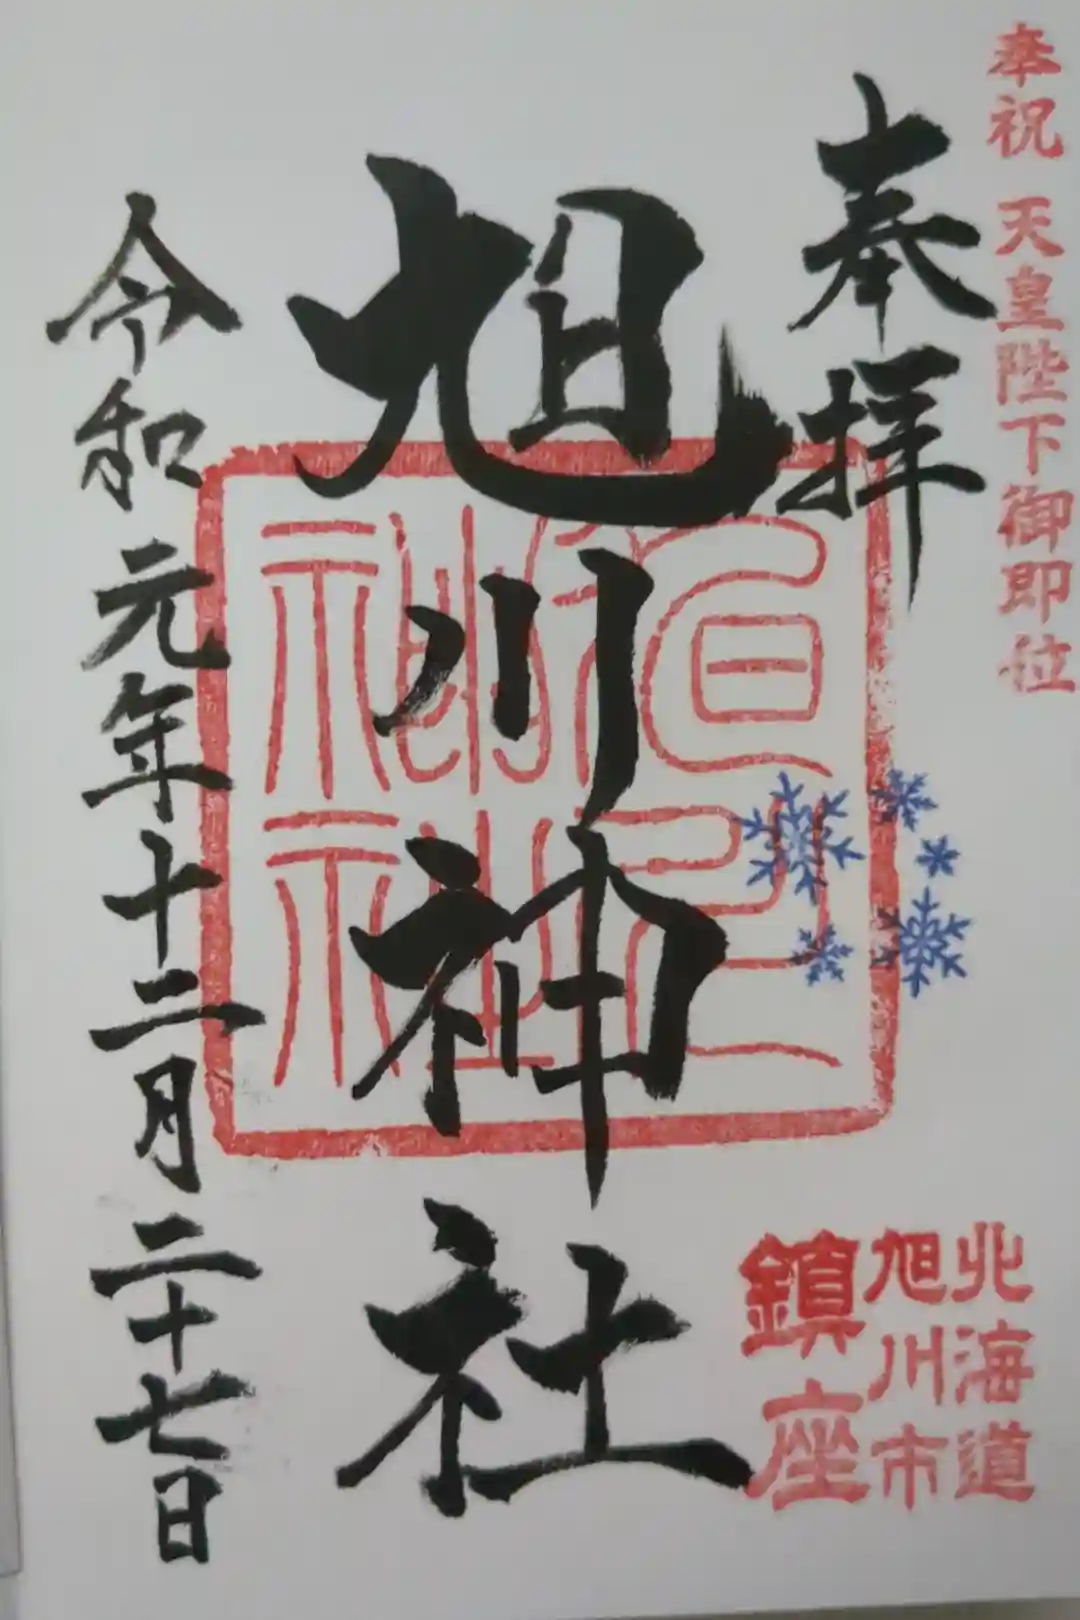 奉祝 天皇陛下御即位
奉拝
旭川神社
令和元年十二月二十七日
北海道
旭川市
鎮座
旭川神社